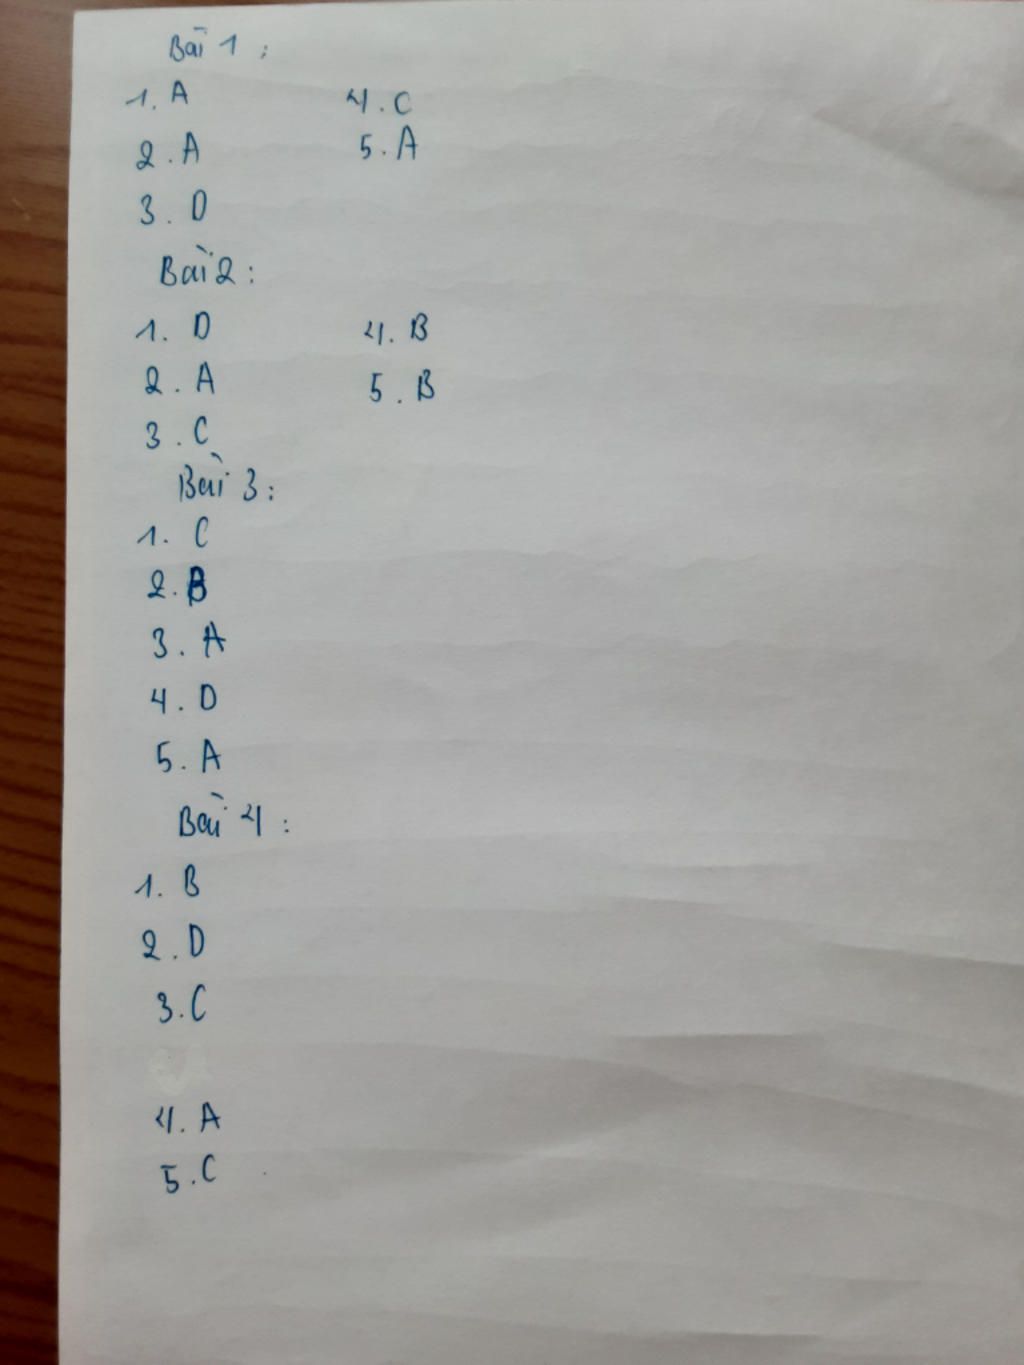 Bài 1 :
1. A 4. C
2. A 5. A
3. D
Bài 2 :
1. D 4. B
2. A 5. B
3. C
Bài 3 :
1. C
2. B
3. A
4. D
5. A
Bài 4 :
1. B
2. D
3. C
4. A
5. C